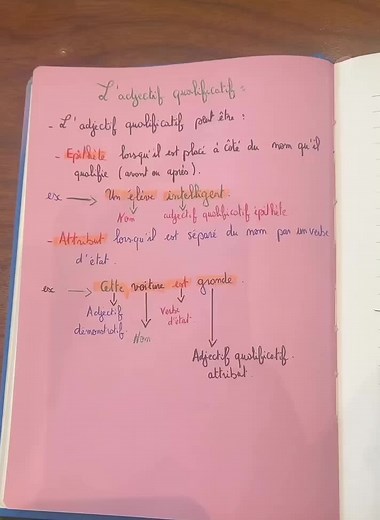 L'adjectif qualificatif :
- L'adjectif qualificatif peut être :
- Epithète lorsqu'il est placé à côté du nom qu'il
qualifie (avant ou après).
ex → Un élève intelligent.
Nom adjectif qualificatif épithète
- Attribut lorsqu'il est séparé du nom par un verbe
d'état.
ex → Cette voiture est grande.
Adjectif démonstratif
Nom
Verbe d'état
Adjectif qualificatif.
attribut